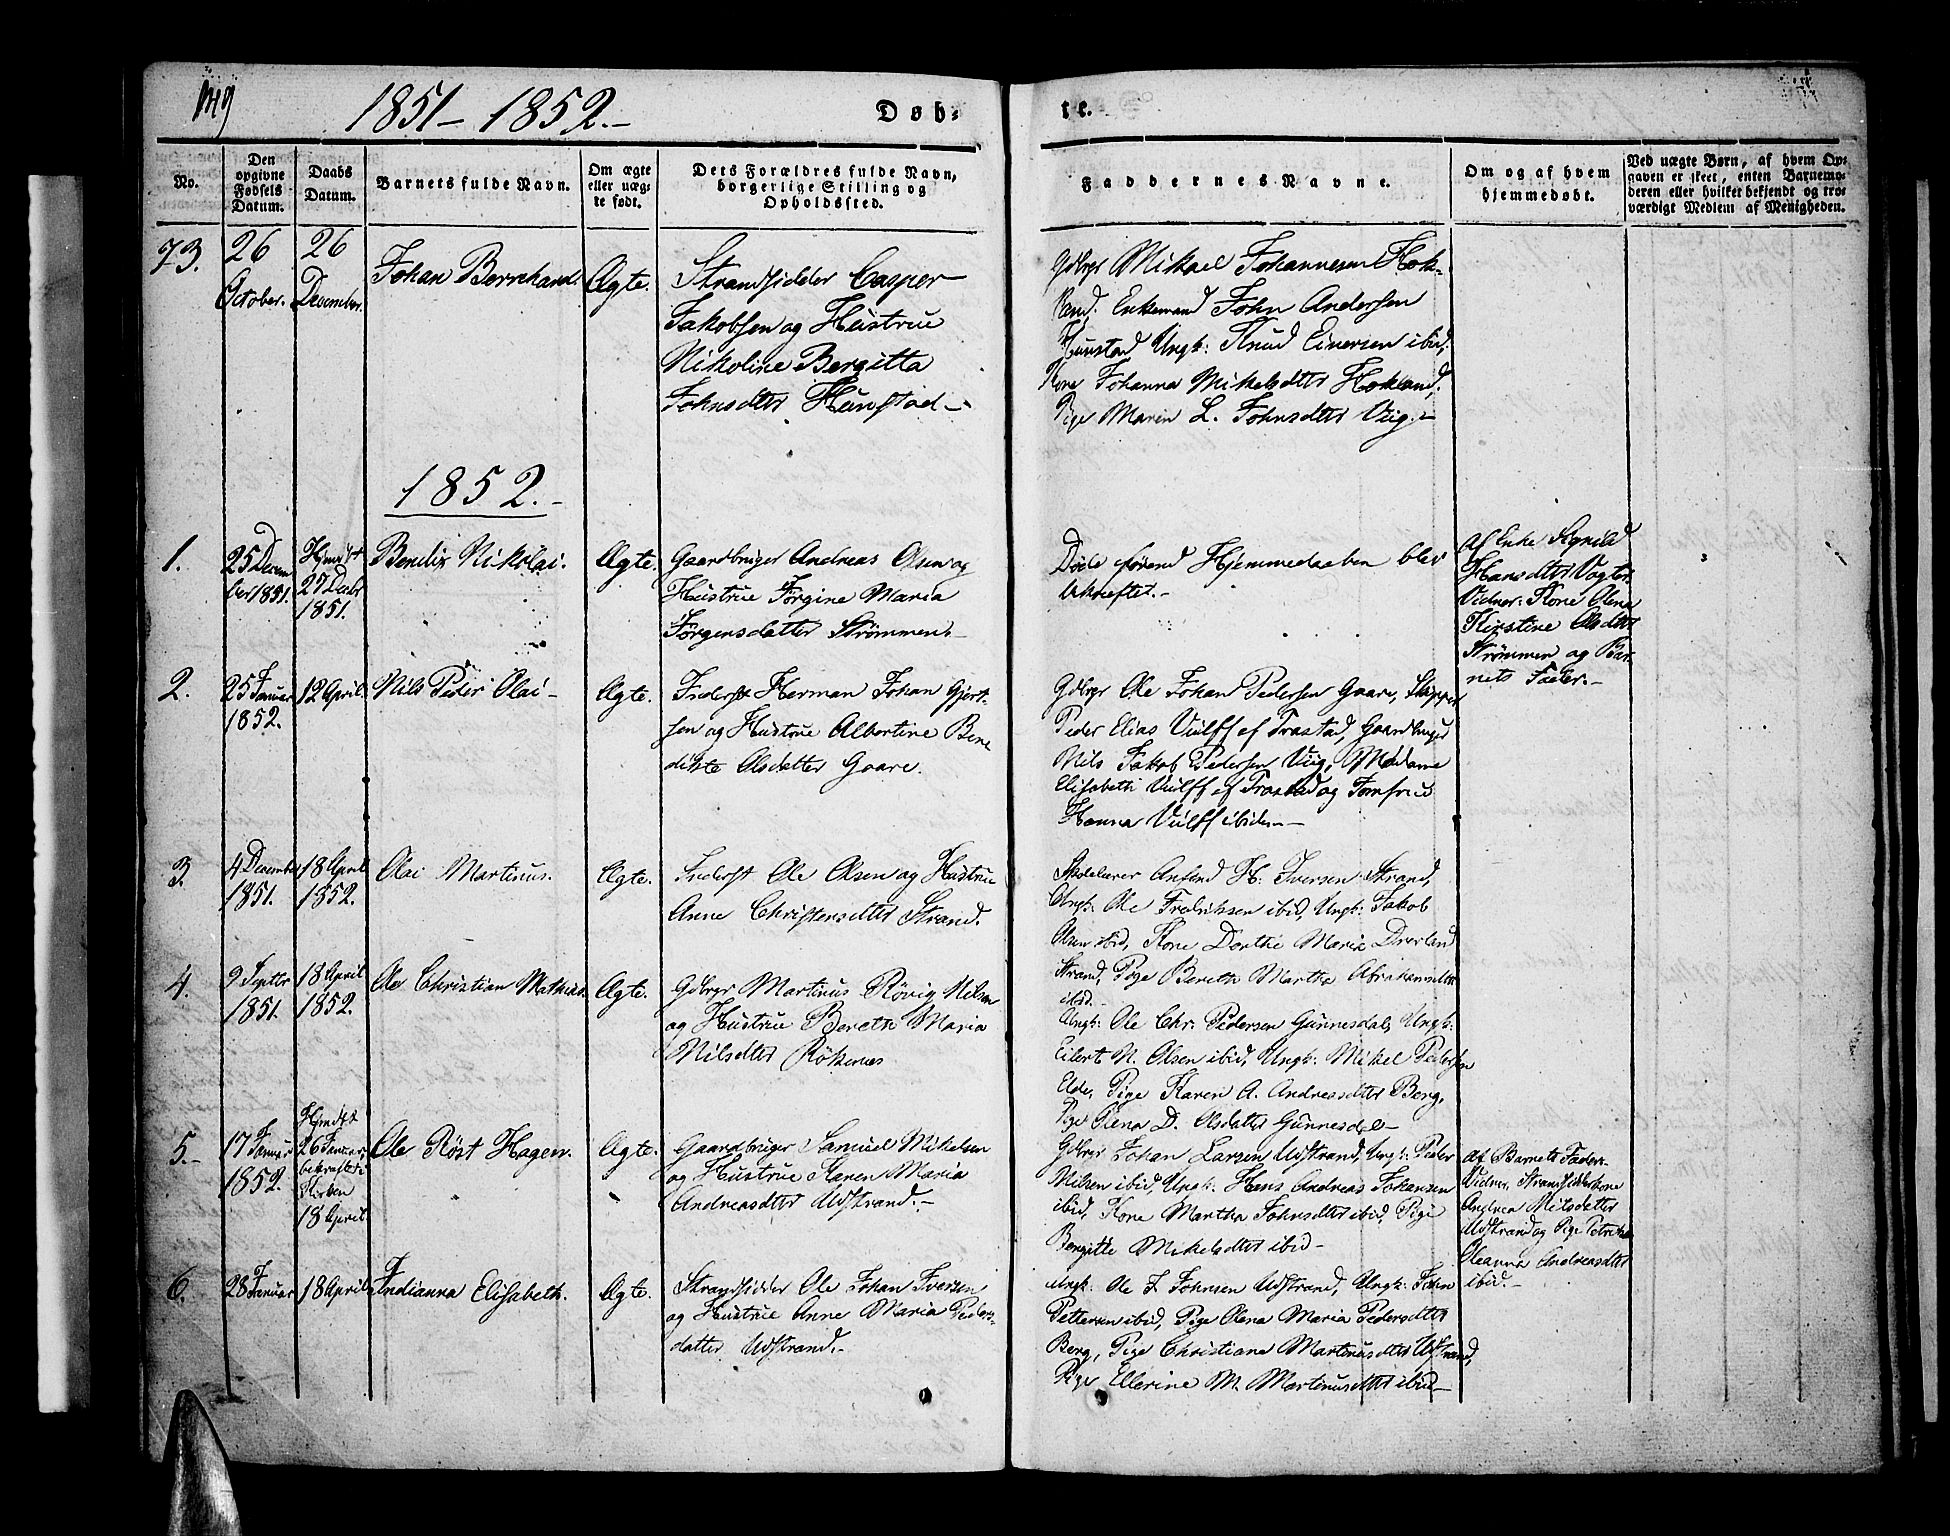 149
1851 – 1852.–
Døb-
te.
No.
Den
opgivne
Fødsels
Datum.
Daabs
Datum.
Barnets fulde Navn.
Om ægte
eller uæg-
te født.
Dets Forældres fulde Navn,
borgerlige Stilling og
Opholdssted.
Faddernes Navne.
Om og af hvem
hjemmedøbt.
Ved uægte Børn, af hvem Op-
gaven er skeet, enten Barnemo-
deren eller hvilket bekjendt og tro-
værdigt Medlem af Menigheden.
73.
26
October.
26
December.
Johan Bernhard.
Ægte.
Strandsidder Casper
Jakobsen og Hustrue
Nikoline Bergitta
Johnsdtr Hunstad –
Gdbrgr Mikael Johannesen Hok-
land, Enkemand John Andersen
Hunstad Ungk: Knud Einersen ibid,
Kone Johanna Mikelsdtr Hokland,
Pige Maren L. Johnsdtr Viig.–
1852.–
1.
25 Decem
ber 1851.
Hjmdøbt
27 Decbr
1851.
Bendix Nikolai.
Ægte.
Gaardbruger Andreas Olsen og
Hustrue Jørgine Maria
Jørgensdatter Strømmen.–
Døde førend Hjemmedaaben blev
bekræftet.–
Af Enke
Hansdtr Vogter.
Vidner: Kone Olena
Kirstine Olsdtr
Strømmen og Bar-
nets Fader.–
2.
25 Januar
1852.
12 April.
Nils Peder Olai –
Ægte.
Inderst Herman Johan Gjert-
sen og Hustrue Albertine Bene
dikte Olsdatter Gaare.
Gdbrgr Ole Johan Pedersen Gaare, Skipper
Peder Elias Vulff af Trastad, Gaardbruger
Nils Jakob Pedersen Viig, Madame
Elisabeth Vulff af Trastad og Jomfrue
Hanna Vulff ibidem.–
3.
4 December
1851.
18 April
1852.
Olai Martinus.
Ægte.
Inderst Ole Olsen og Hustrue
Anne Christensdtr Strand.
Skolelærer Anfind H. Iversen Strand,
Ungk: Ole Fredriksen ibid, Ungk: Jakob
Olsen ibid, Kone Dorthe Maria
Strand, Pige Bereth Martha
ibid.
4.
9 Septbr
1851.
18 April
1852.
Ole Christian Mathias.
Ægte.
Gdbrgr Martinus Røvig Nilsen
og Hustrue Bereth Maria
Nilsdtr Røkenes
Ungk: Ole Chr. Pedersen Gunnesdal, Ungk:
Eilert N. Olsen ibid, Ungk: Mikel Pedersen
Elde, Pige Karen A. Andreasdtr Berg,
Pige Olena D. Olsdatter Gunnesdal –
5.–
17 Januar
1852.
Hjmdøbt
26 Januar,
bekræftet i
Kirken
18 April.
Ole Røst Hagen.
Ægte.
Gaardbruger Samuel Mikelsen
og Hustrue Karen Maria
Andreasdtr Udstrand.–
Gdbrgr Johan Larsen Udstrand, Ungk: Peder
Nilsen ibid, Ungk: Hans Andreas Johansen
ibid, Kone Martha Johnsdtr ibid, Pige
Bergitte Mikelsdtr ibid –
Af Barnets Fader.
Vidner, Strandsidderkone
Andrea Nilsdatter
Udstrand og Pige
Oleanna Andreasdtr
ibid.–
6.
28 Januar
18 April
Indianna Elisabeth.
Ægte.
Strandsidder Ole Johan Iversen
og Hustrue Anne Maria Peders-
datter Udstrand.–
Ungk: Ole J. Johnsen Udstrand, Ungk: John
Pettersen ibid, Pige Olena Maria Pedersdtr
Berg, Pige Christiana Martinusdtr Udstrand,
Pige Ellerine M. Martinusdtr ibid –